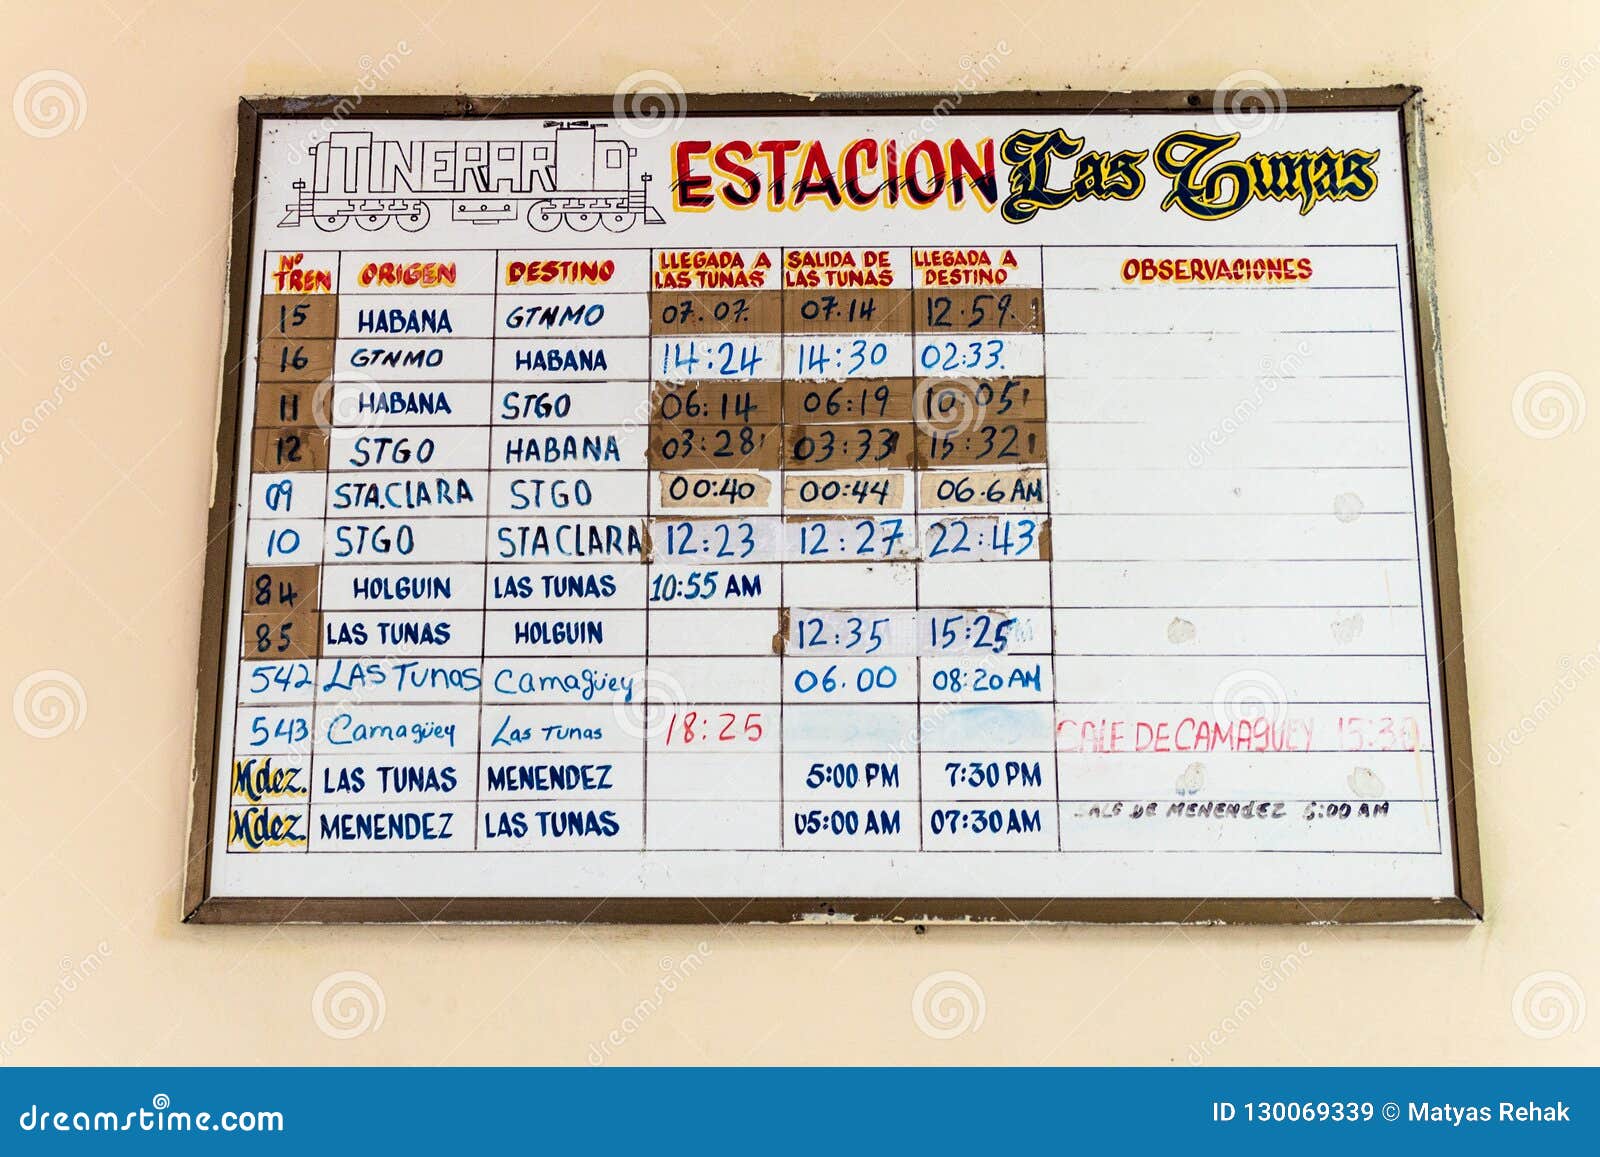 ITINERARIO ESTACION Las Tunas
Nº TREN ORIGEN DESTINO LLEGADA A LAS TUNAS SALIDA DE LAS TUNAS LLEGADA A DESTINO OBSERVACIONES
15 HABANA GTNMO 07.07. 07.14 12.59.
16 GTNMO HABANA 14:24 14:30 02:33.
11 HABANA STGO 06:14 06:19 10:05
12 STGO HABANA 03:28 03:33 15:32
09 STA.CLARA STGO 00:40 00:44 06.6 AM
10 STGO STACLARA 12:23 12:27 22:43
84 HOLGUIN LAS TUNAS 10:55 AM
85 LAS TUNAS HOLGUIN 12:35 15:25
542 LAS Tunas Camagüey 06.00 08:20 AM
543 Camagüey Las Tunas 18:25 CALE DE CAMAGUEY 15:30
Mdez. LAS TUNAS MENENDEZ 5:00 PM 7:30 PM
Mdez. MENENDEZ LAS TUNAS 05:00 AM 07:30 AM SALE DE MENENDEZ 5:00 AM
dreamstime.com ID 130069339 © Matyas Rehak